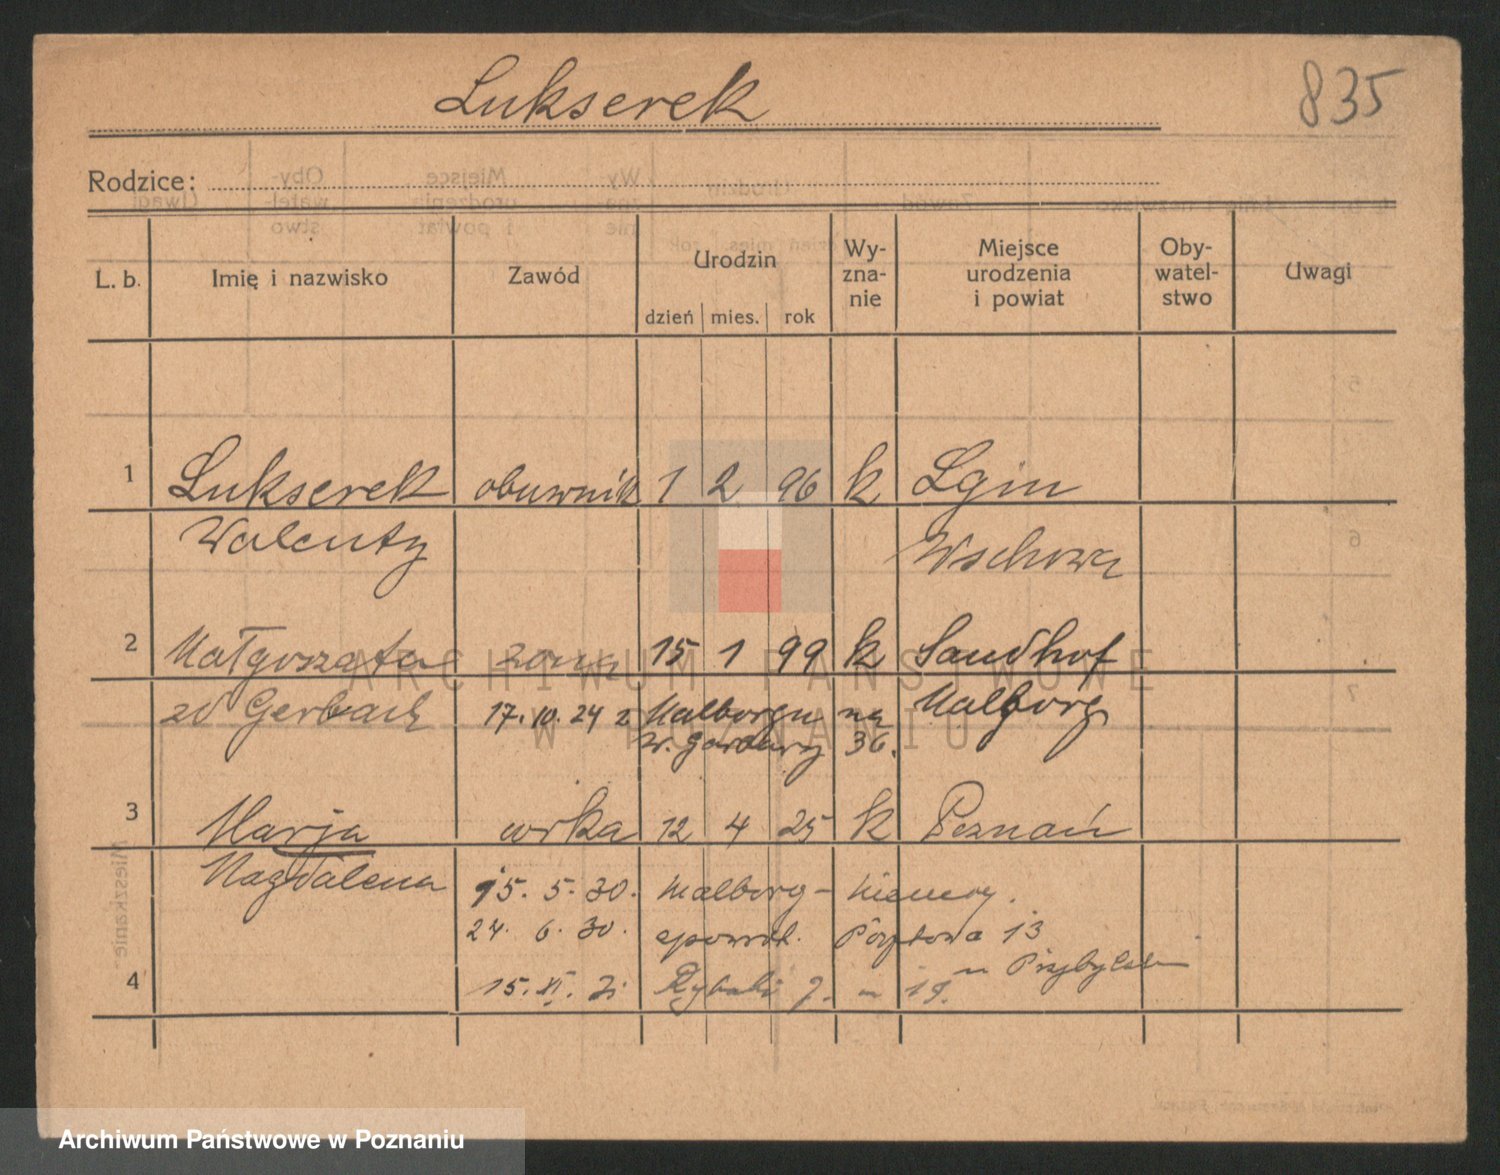 Lukserek
835
Rodzice:
L. b. Imię i nazwisko Zawód Urodzin dzień mies. rok Wy-zna-nie Miejsce urodzenia i powiat Oby-watel-stwo Uwagi
1 Lukserek obuwnik 1 2 96 k Lgin
Walenty Wschowa
2 Małgorzata żona 15 1 99 k Sandhof
zd Gerbach 17. 10. 24 z Malborgu na Malborg
W. Garbary 36.
3 Marja córka 12 4 25 k Poznań
Magdalena 15. 5. 30. Malborg - Niemcy.
24. 6. 30. spowrót. 13
4 15. XI. 31 Rybaki 7. - 19.
ARCHIWUM PAŃSTWOWE
W POZNANIU
Mieszkanie
Archiwum Państwowe w Poznaniu